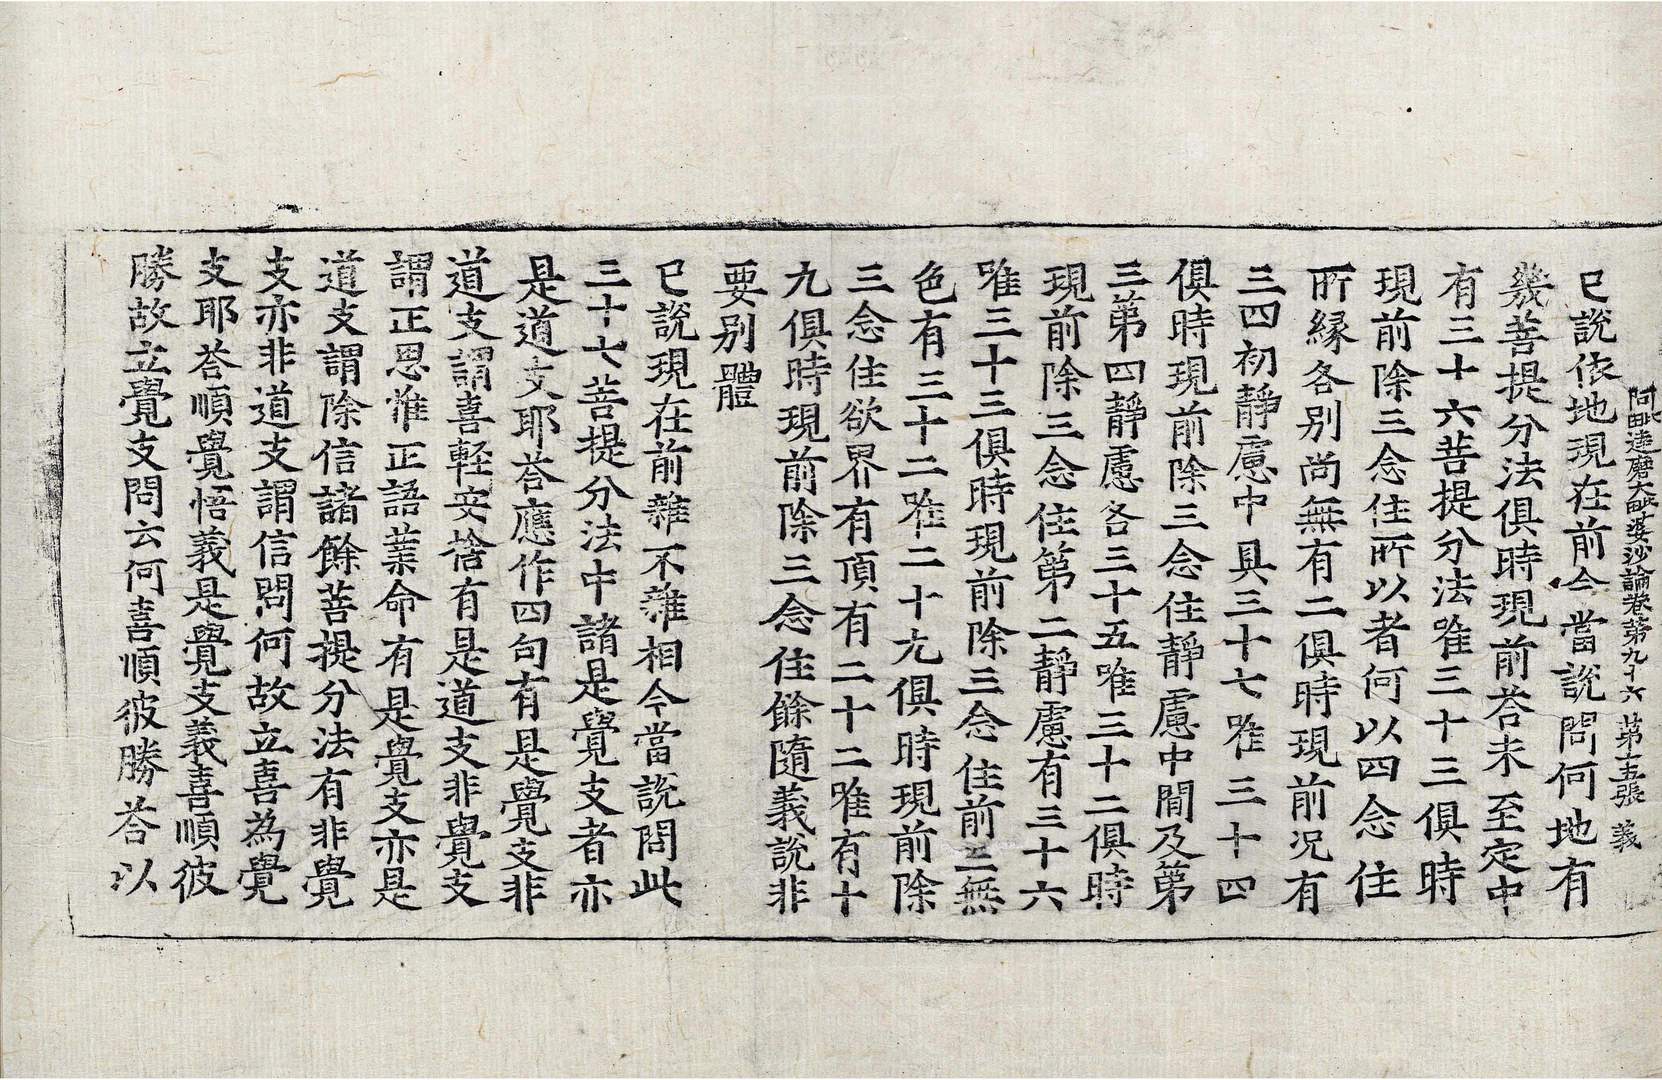 阿毗達磨大毗婆沙論卷第九十六 第十五張 義
已說依地現在前今當說問何地有
幾菩提分法俱時現前荅未至定中
有三十六菩提分法唯三十三俱時
現前除三念住所以者何以四念住
所緣各别尚無有二俱時現前况有
三四初靜慮中具三十七唯三十四
俱時現前除三念住靜慮中間及第
三第四靜慮各三十五唯三十二俱時
現前除三念住第二靜慮有三十六
唯三十三俱時現前除三念住前三無
色有三十二唯二十九俱時現前除
三念住欲界有頂有二十二唯有十
九俱時現前除三念住餘隨義說非
要别體
已說現在前雜不雜相今當說問此
三十七菩提分法中諸是覺支者亦
是道支耶荅應作四句有是覺支非
道支謂喜輕安捨有是道支非覺支
謂正思惟正語業命有是覺支亦是
道支謂除信諸餘菩提分法有非覺
支亦非道支謂信問何故立喜為覺
支耶荅順覺悟義是覺支義喜順彼
勝故立覺支問云何喜順彼勝荅以